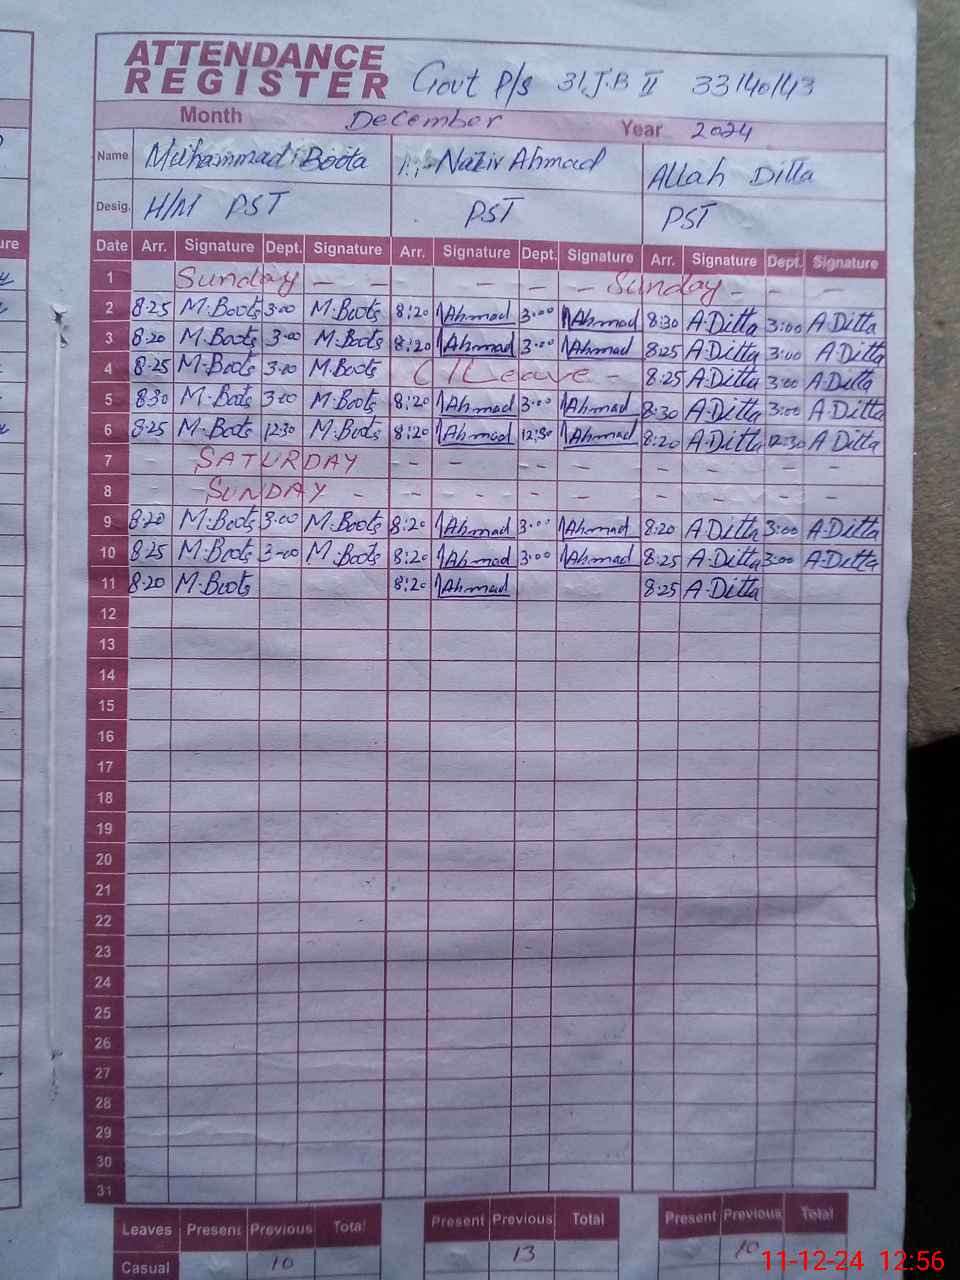 ATTENDANCE
REGISTER Govt P/s 31 J.B II 33140143
Month December Year 2024
Name Muhammad Boota Nazir Ahmad Allah Ditta
Desig. H/M PST PST PST
Date Arr. Signature Dept. Signature Arr. Signature Dept. Signature Arr. Signature Dept. Signature
1 Sunday - - - - - - Sunday - - -
2 8:25 M.Boota 3:00 M.Boota 8:20 NAhmad 3:00 NAhmad 8:30 A.Ditta 3:00 A.Ditta
3 8:20 M.Boota 3:00 M.Boota 8:20 NAhmad 3:00 NAhmad 8:25 A.Ditta 3:00 A.Ditta
4 8:25 M.Boota 3:00 M.Boota C/Leave - 8:25 A.Ditta 3:00 A.Ditta
5 8:30 M.Boota 3:00 M.Boota 8:20 NAhmad 3:00 NAhmad 8:30 A.Ditta 3:00 A.Ditta
6 8:25 M.Boota 12:30 M.Boota 8:20 NAhmad 12:30 NAhmad 8:20 A.Ditta 12:30 A Ditta
7 - SATURDAY - - - - - - - -
8 - SUNDAY - - - - - - - - -
9 8:20 M.Boota 3:00 M.Boota 8:20 NAhmad 3:00 NAhmad 8:20 A Ditta 3:00 A.Ditta
10 8:25 M.Boota 3:00 M.Boota 8:20 NAhmad 3:00 NAhmad 8:25 A.Ditta 3:00 A.Ditta
11 8:20 M.Boota 8:20 NAhmad 8:25 A.Ditta
12
13
14
15
16
17
18
19
20
21
22
23
24
25
26
27
28
29
30
31
Leaves Present Previous Total Present Previous Total Present Previous Total
Casual 10 13 10
11-12-24 12:56